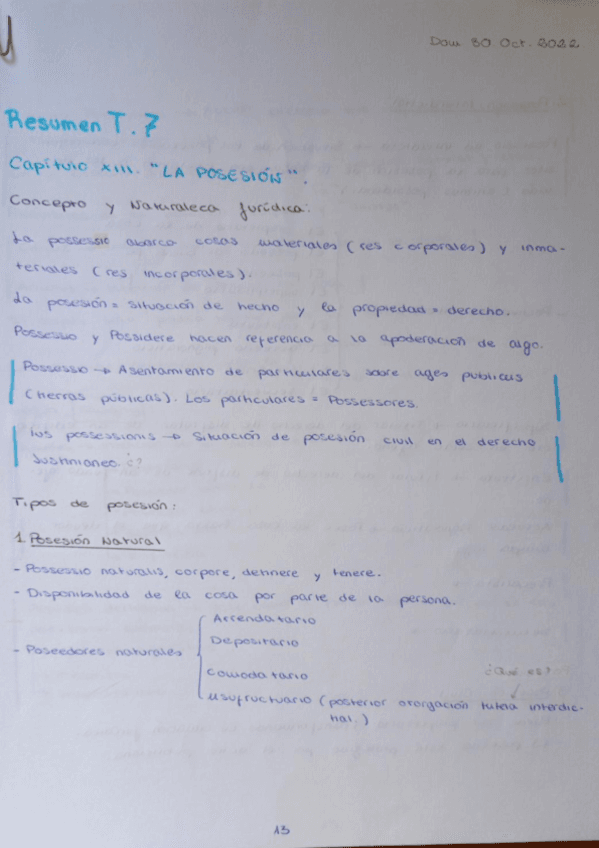 Dom 30 Oct. 2022
Resumen T. 7
Capítulo XIII. "LA POSESIÓN".
Concepto y Naturaleca jurídica:
La possessio abarca cosas materiales (res corporales) y inma-
teriales (res incorporales).
La posesión = situación de hecho y la propiedad = derecho.
Possessio y Possidere hacen referencia a la apoderación de algo.
Possessio → Asentamiento de particulares sobre ager publicus
(tierras públicas). Los particulares = Possessores.
Ius possessionis → Situación de posesión civil en el derecho
Justinianeo. ¿?
Tipos de posesión:
1. Posesión Natural
- Possessio naturalis, corpore, detinere y tenere.
- Disponibilidad de la cosa por parte de la persona.
Arrendatario
Depositario
- Poseedores naturales
Comodatario
¿Qué es?
Usufructuario (posterior otorgación tutela interdic-
tal.)
A3